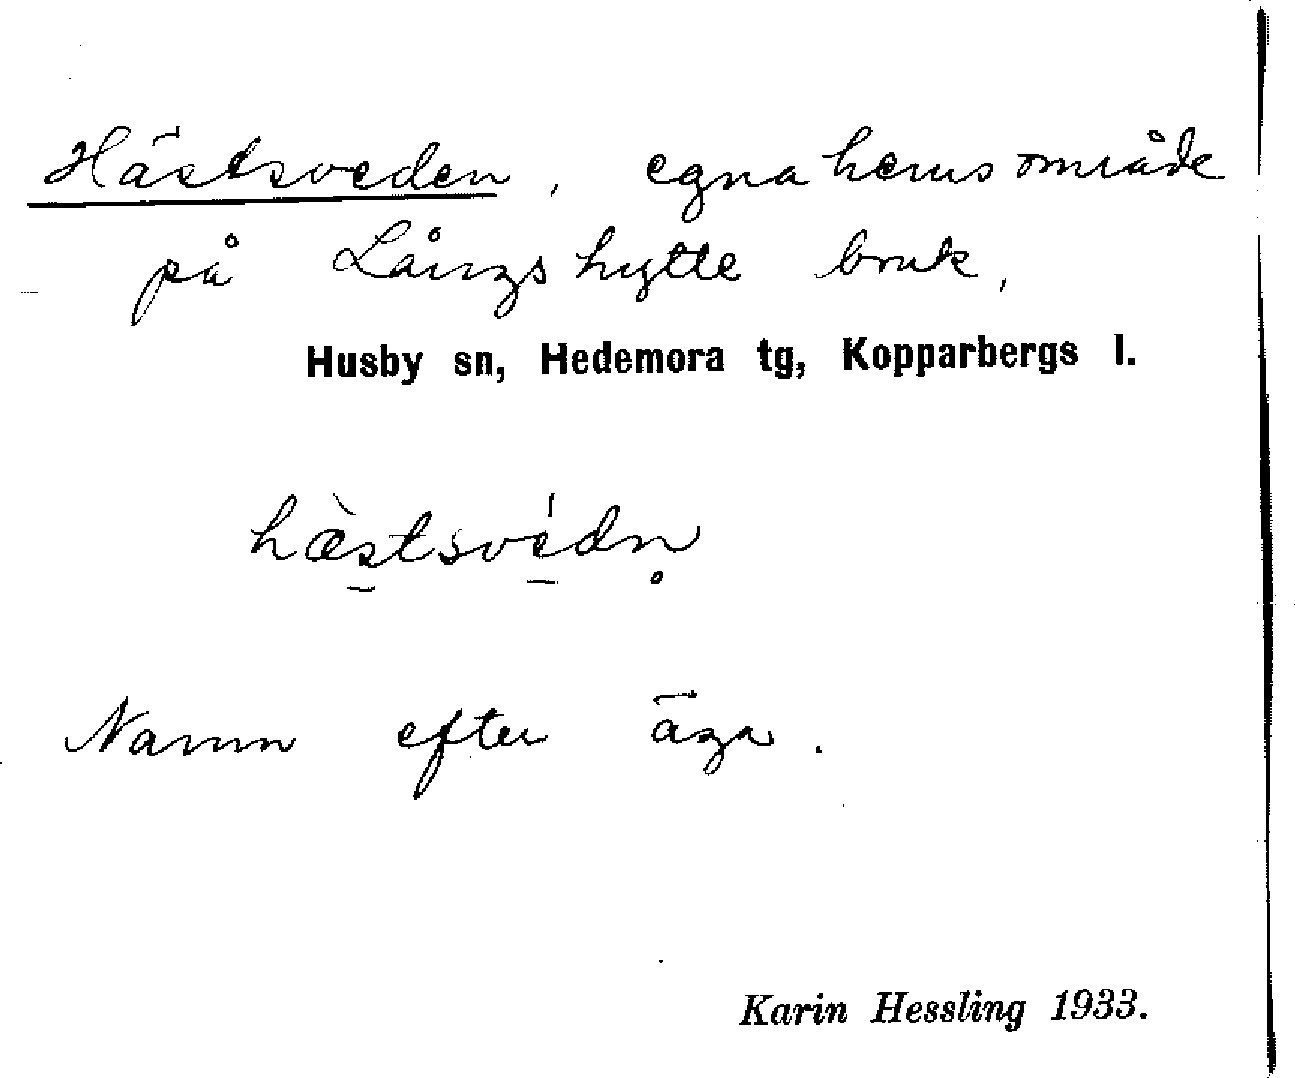 Hästsveden, egnahemsområde
på Långshytte bruk,
Husby sn, Hedemora tg, Kopparbergs l.
hæ̀stsvédn̥
Namn efter äga.
Karin Hessling 1933.